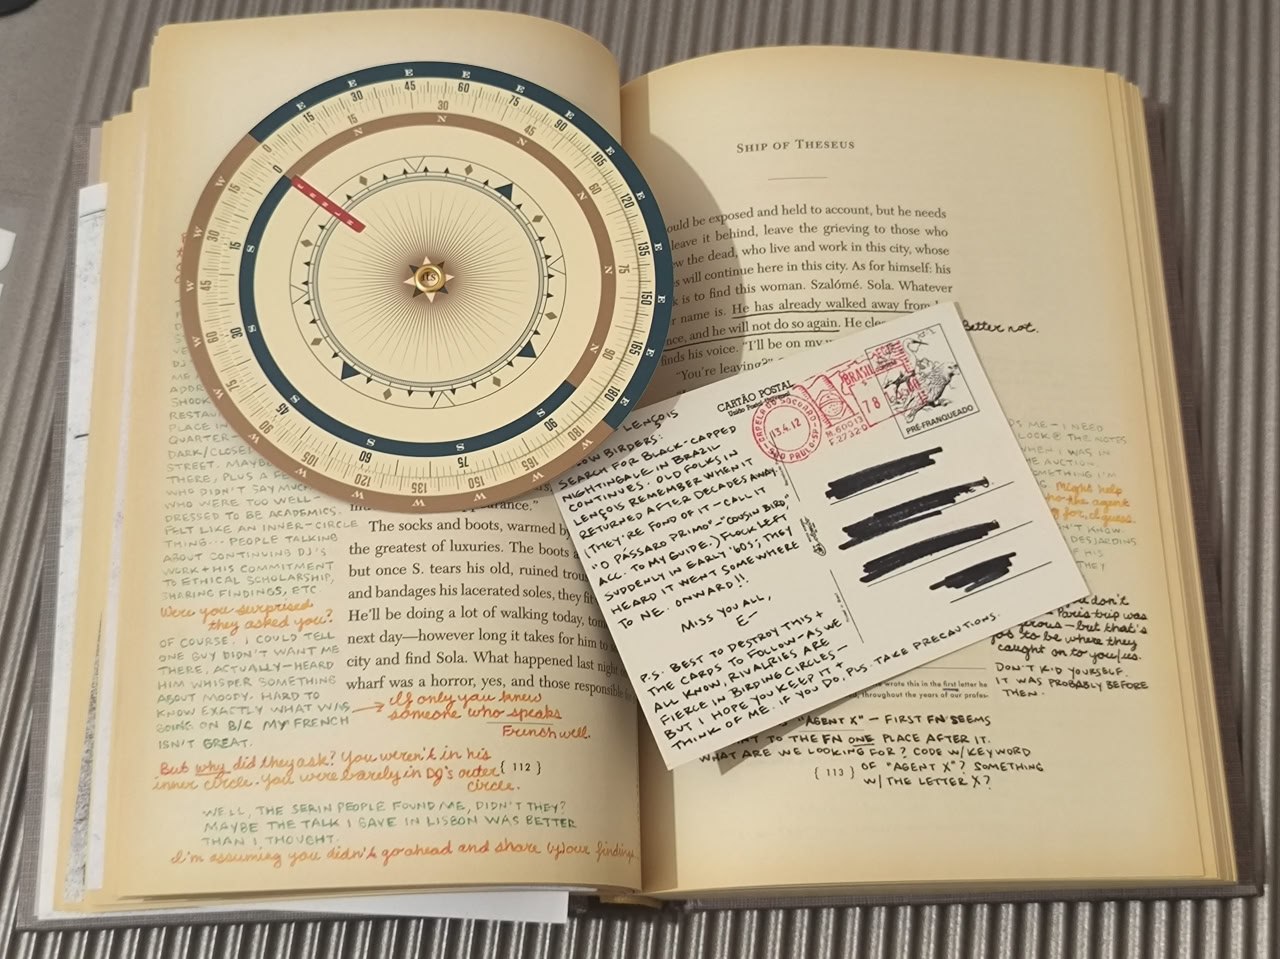 SHIP OF THESEUS
ould be exposed and held to account, but he needs
leave it behind, leave the grieving to those who
the dead, who live and work in this city, whose
s will continue here in this city. As for himself: his
is to find this woman. Szalómé. Sola. Whatever
name is. He has already walked away from
nce, and he will not do so again. He
finds his voice. "I'll be on my
"You're leaving?"
Better not.
CARTÃO POSTAL
PRÉ-FRANQUEADO
BRASIL
SÃO PAULO-SP
13.4.12
LENÇOIS
BIRDERS:
SEARCH FOR BLACK-CAPPED
NIGHTINGALE IN BRAZIL
CONTINUES. OLD FOLKS IN
LENÇOIS REMEMBER WHEN IT
RETURNED AFTER DECADES AWAY
(THEY'RE FOND OF IT—CALL IT
"O PÁSSARO PRIMO"—"COUSIN BIRD,"
ACC. TO MY GUIDE.) FLOCK LEFT
SUDDENLY IN EARLY '60S; THEY
HEARD IT WENT SOMEWHERE
TO NE. ONWARD!!
MISS YOU ALL,
E—
P.S. BEST TO DESTROY THIS +
THE CARDS TO FOLLOW—AS WE
ALL KNOW, RIVALRIES ARE
FIERCE IN BIRDING CIRCLES—
BUT I HOPE YOU KEEP IT +
THINK OF ME. IF YOU DO, PLS. TAKE PRECAUTIONS.
ME—I NEED
LOOK @ THE NOTES
WHEN I WAS IN
AUCTION.
SOMETHING I'M
Might help
the agent
for, I guess.
KNOW
DESJARDINS
OF HIS
THEY
don't
Paris trip was
—but that's
to be where they
caught on to you/us.
DON'T KID YOURSELF.
IT WAS PROBABLY BEFORE
THEN.
wrote this in the first letter he
throughout the years of our profes-
"AGENT X"— FIRST FN SEEMS
TO THE FN ONE PLACE AFTER IT.
WHAT ARE WE LOOKING FOR? CODE W/KEYWORD
OF "AGENT X"? SOMETHING
W/ THE LETTER X?
{ 113 }
The socks and boots, warmed by
the greatest of luxuries. The boots
but once S. tears his old, ruined
and bandages his lacerated soles, they
He'll be doing a lot of walking today,
next day—however long it takes for him to
city and find Sola. What happened last
wharf was a horror, yes, and those responsible
STREET. MAYBE
THERE, PLUS A
WHO DIDN'T SAY MUCH
WHO WERE TO WELL-
DRESSED TO BE ACADEMICS.
FELT LIKE AN INNER-CIRCLE
THING... PEOPLE TALKING
ABOUT CONTINUING DJ'S
WORK + HIS COMMITMENT
TO ETHICAL SCHOLARSHIP,
SHARING FINDINGS, ETC.
Were you surprised
they asked you?
OF COURSE. I COULD TELL
ONE GUY DIDN'T WANT ME
THERE, ACTUALLY—HEARD
HIM WHISPER SOMETHING
ABOUT MOODY. HARD TO
KNOW EXACTLY WHAT WAS
GOING ON B/C MY FRENCH
ISN'T GREAT.
If only you knew
someone who speaks
French well.
But why did they ask? You weren't in his
inner circle. You were barely in DJ's outer
circle.
{ 112 }
WELL, THE SERIN PEOPLE FOUND ME, DIDN'T THEY?
MAYBE THE TALK I GAVE IN LISBON WAS BETTER
THAN I THOUGHT.
I'm assuming you didn't go ahead and share your findings